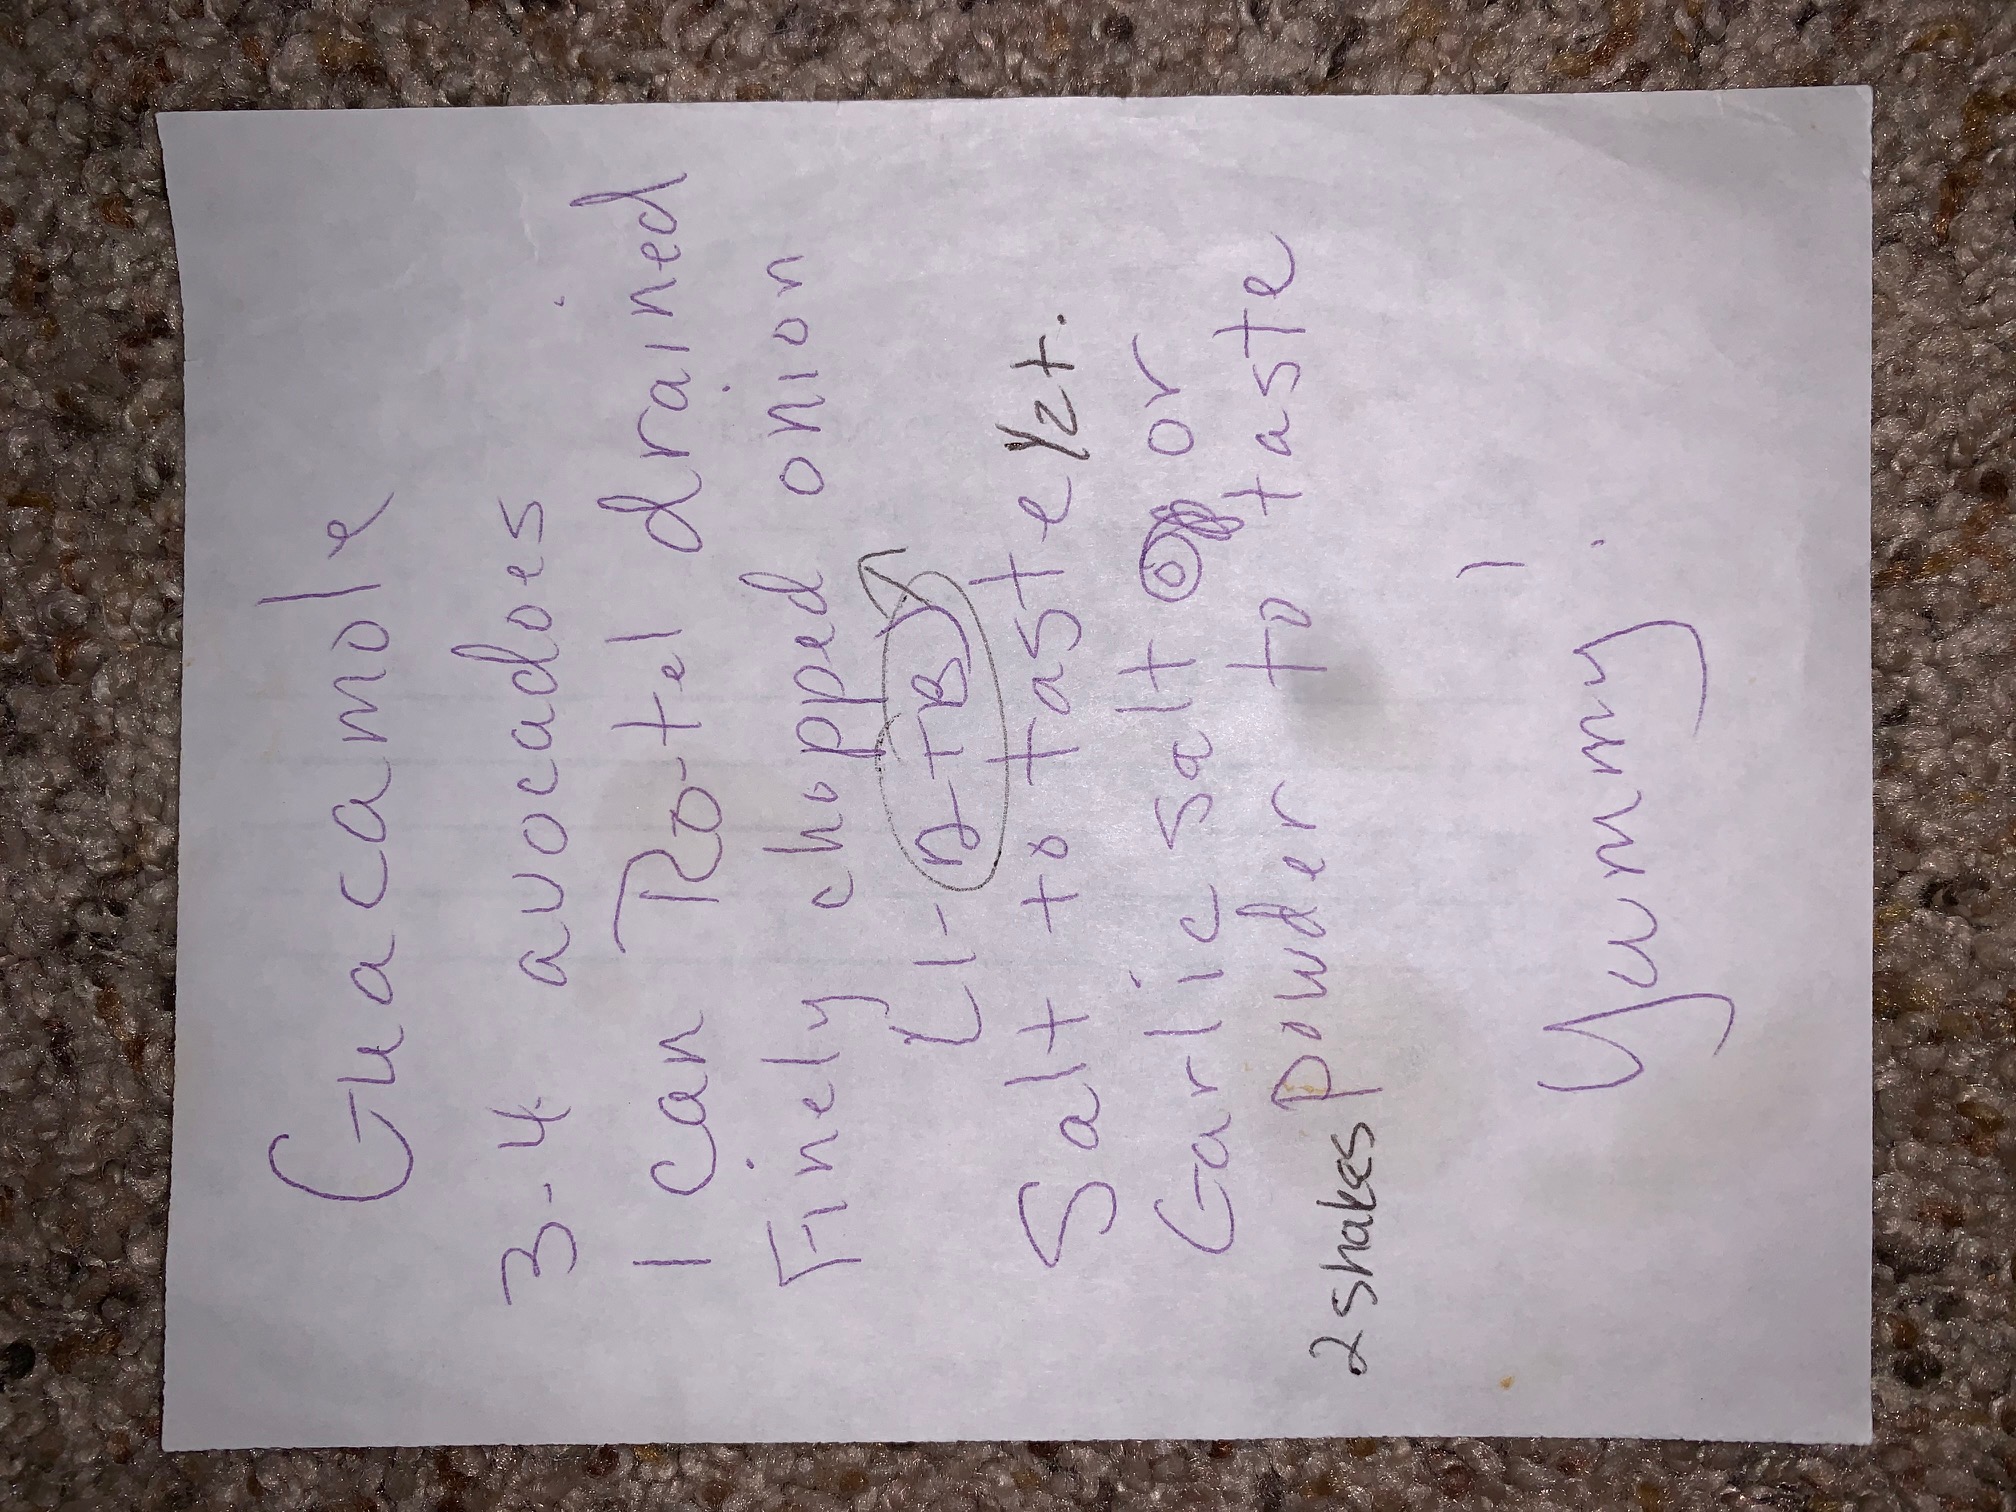 Guacamole
3-4 avocadoes
1 can Ro-tel drained
Finely chopped onion
(1-2 TB)
Salt to taste 1/2 t.
Garlic salt or
powder to taste
2 shakes
Yummy!